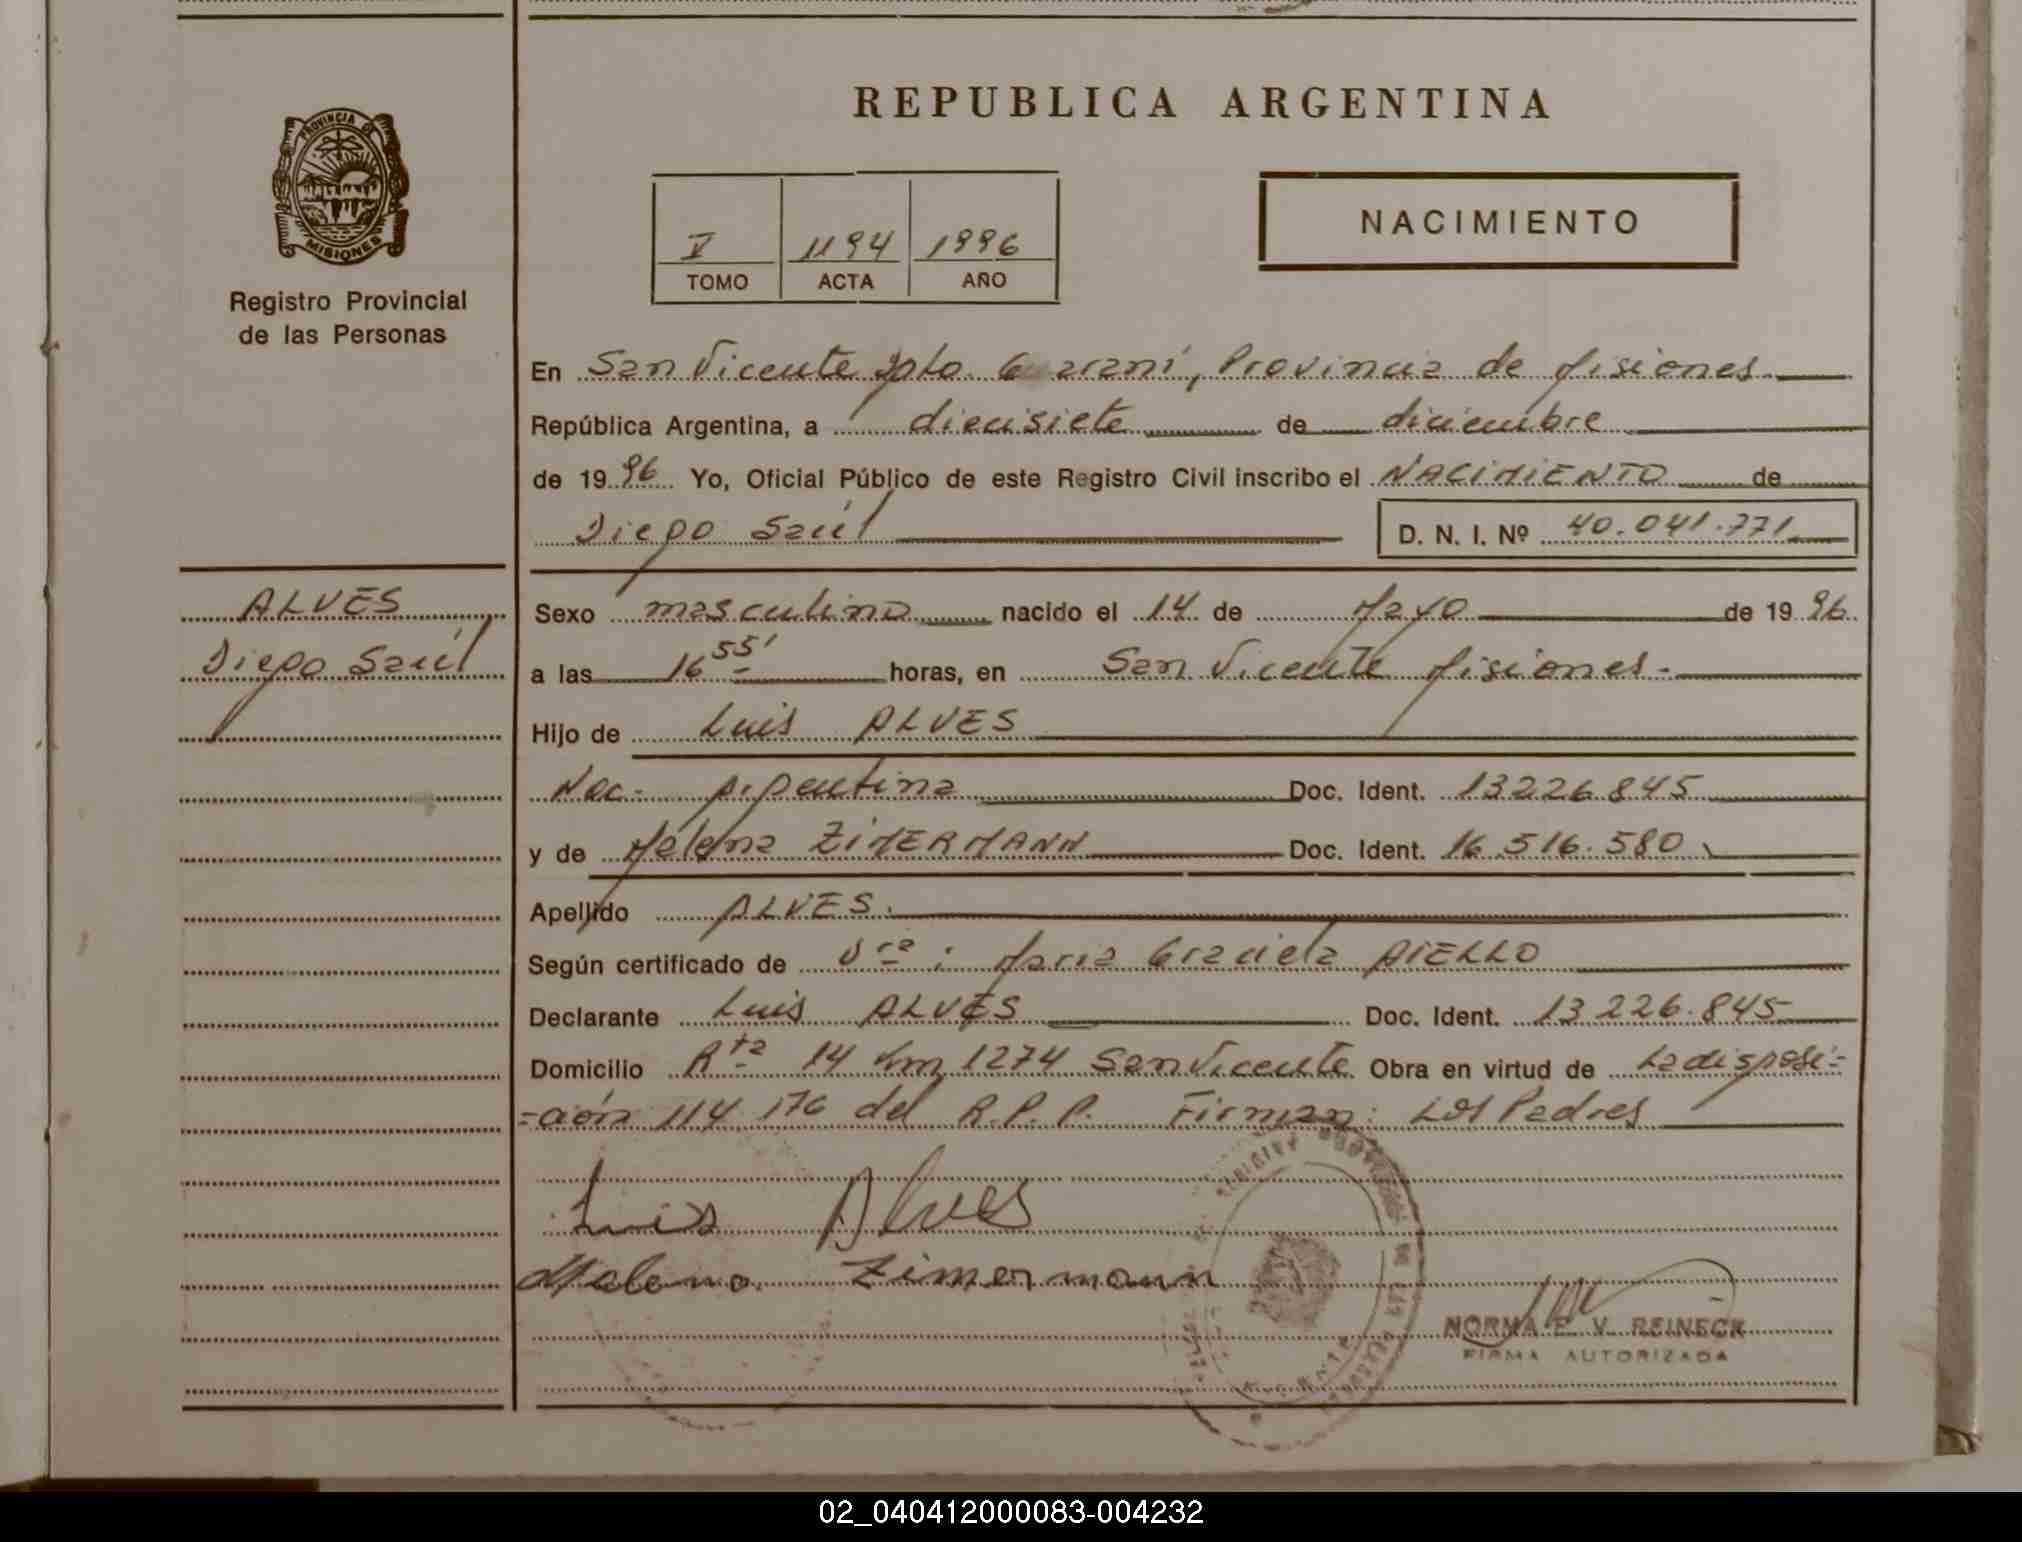 PROVINCIA DE
MISIONES
Registro Provincial
de las Personas
REPUBLICA ARGENTINA
V 1194 1996
TOMO ACTA AÑO
NACIMIENTO
En San Vicente Dpto. Guaraní, Provincia de Misiones
República Argentina, a diecisiete de diciembre
de 1996 Yo, Oficial Público de este Registro Civil inscribo el NACIMIENTO de
Diego Saúl D. N. I. Nº 40.041.771
ALVES
Diego Saúl
Sexo masculino nacido el 14 de Mayo de 1996
a las 16 55' horas, en San Vicente Misiones-
Hijo de Luis ALVES
Nac- Argentina Doc. Ident. 13226.845
y de Malena ZIMERMANN Doc. Ident. 16.516.580
Apellido ALVES.
Según certificado de Dra: Maria Graciela AIELLO
Declarante Luis ALVES Doc. Ident. 13 226.845
Domicilio Rta 14 km 1274 San Vicente Obra en virtud de La disposi=
=ción 114 176 del R.P.P. Firman: Los Padres
Luis Alves
Malena Zimermann
NORMA E. V. REINECK
FIRMA AUTORIZADA
02_040412000083-004232